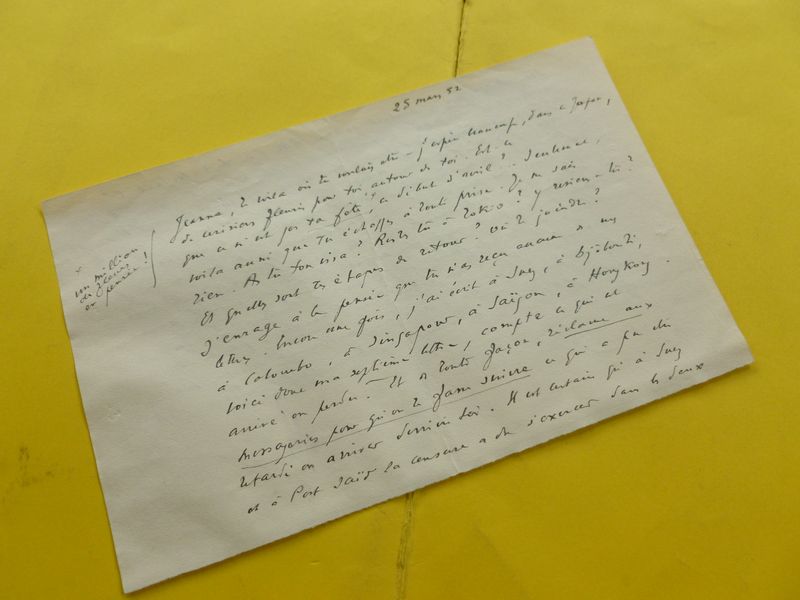 25 mars 52
Jeanne, te voilà où tu voulais être – j'espère beaucoup, dans ce Japon,
de cerisiers fleuris pour toi, autour de toi. Est-ce
que ce n'est pas ta fête, ce début d'avril ?
voilà aussi que tu échappes à toute prise. Je ne sais
rien. As tu ton visa ? Restes tu à Tokio ? y reviens-tu ?
Et quelles sont tes étapes de retour ? où te joindre ?
J'enrage à la pensée que tu n'as reçu aucune de mes
lettres. Encore une fois, j'ai écrit à Suez, à Djibouti,
à Colombo, à Singapour, à Saïgon, à Hongkong.
voici donc ma septième lettre, compte ce qui est
arrivé ou perdu. Et de toute façon, réclame aux
messageries pour qu'on te fasse suivre ce qui a pu être
retardé ou arriver derrière toi. Il est certain qu'à Suez
et à Port Saïd la censure a dû s'exercer dans les deux
un million
de fleurs
en pensée !